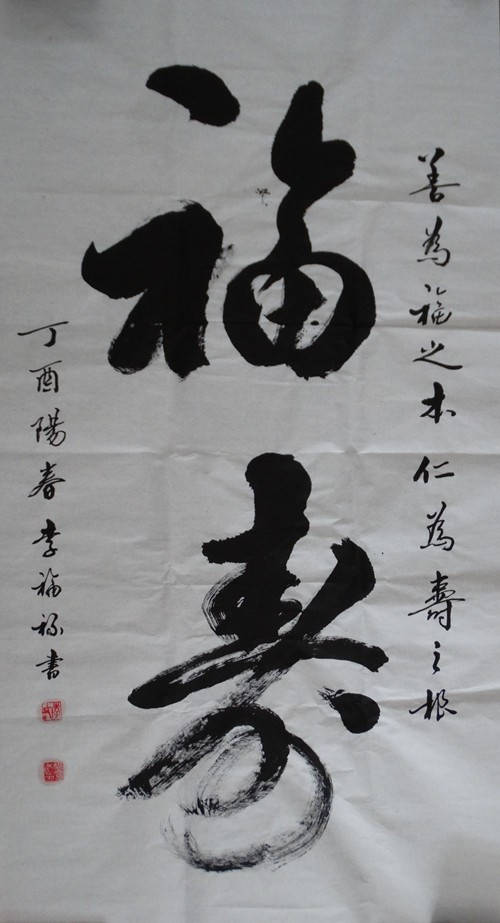 福寿
善為福之本仁為壽之根
丁酉陽春李福祿書